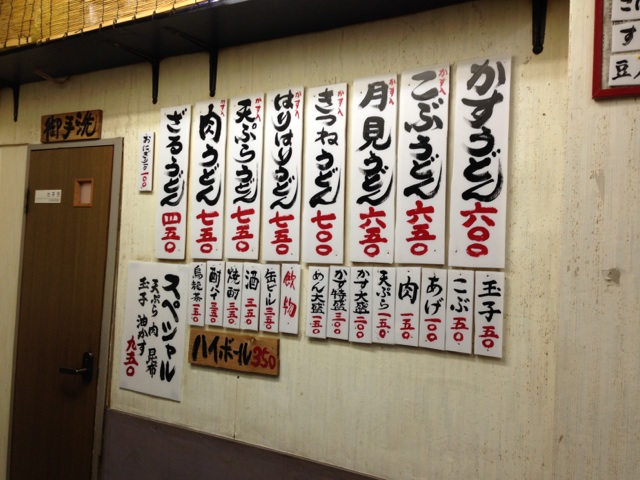 かすうどん 六〇〇
かす入 こぶうどん 六五〇
かす入 月見うどん 六五〇
かす入 きつねうどん 七〇〇
かす入 はりはりうどん 七五〇
かす入 天ぷらうどん 七五〇
かす入 肉うどん 七五〇
ざるうどん 四五〇
おにぎり 一〇〇
御手洗
玉子 五〇
こぶ 五〇
あげ 一〇〇
肉 一五〇
天ぷら 一五〇
かす大盛 二〇〇
かす特盛 三〇〇
めん大盛 一五〇
飲物
缶ビール 三五〇
酒 三五〇
焼酎 三五〇
酎ハイ 三五〇
烏龍茶 一五〇
ハイボール 350
スペシャル
天ぷら 肉 昆布
玉子 油かす
九五〇